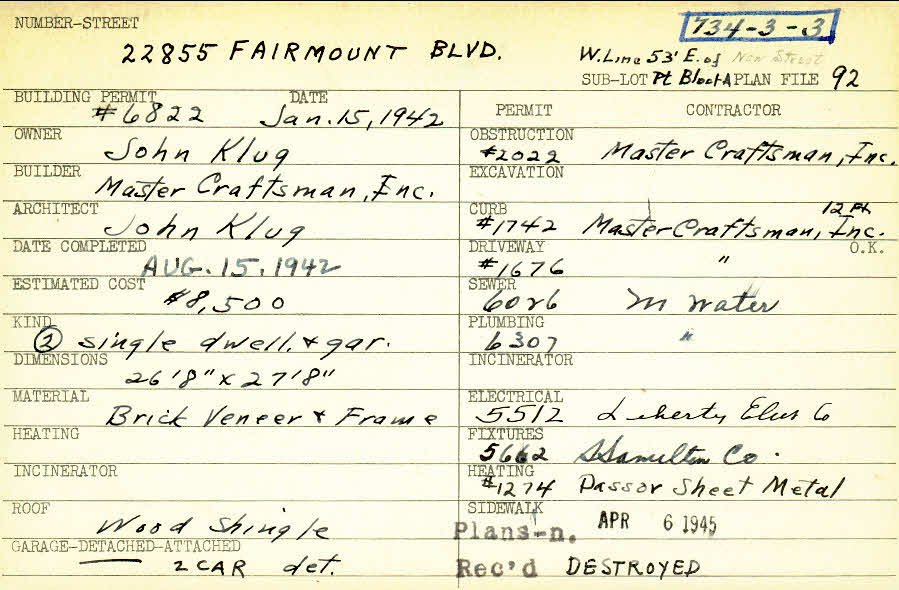 NUMBER-STREET
734-3-3
22855 FAIRMOUNT BLVD.
W. Line 53' E. of New Street
SUB-LOT Pt Block A PLAN FILE 92
BUILDING PERMIT DATE
#6822 Jan. 15, 1942
OWNER
John Klug
BUILDER
Master Craftsman, Inc.
ARCHITECT
John Klug
DATE COMPLETED
AUG. 15, 1942
ESTIMATED COST
$8,500
KIND
② single dwell. + gar.
DIMENSIONS
26'8" x 27'8"
MATERIAL
Brick Veneer + Frame
HEATING
INCINERATOR
ROOF
Wood Shingle
GARAGE-DETACHED-ATTACHED
2 CAR det.
PERMIT CONTRACTOR
OBSTRUCTION
#2022 Master Craftsman, Inc.
EXCAVATION
CURB 12 Ft
#1742 Master Craftsman, Inc.
DRIVEWAY O.K.
#1676 "
SEWER
6026 M Water
PLUMBING
6307 "
INCINERATOR
ELECTRICAL
5512 Liberty Elec Co
FIXTURES
5662 Hamilton Co.
HEATING
#1274 Passor Sheet Metal
SIDEWALK
Plans-n. APR 6 1945
Rec'd DESTROYED